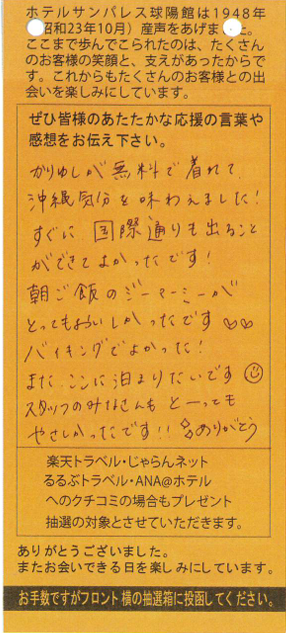 ホテルサンパレス球陽館は1948年
昭和23年10月）産声をあげました。
ここまで歩んでこられたのは、たくさん
のお客様の笑顔と、支えがあったからで
す。これからもたくさんのお客様との出
会いを楽しみにしています。
ぜひ皆様のあたたかな応援の言葉や
感想をお伝え下さい。
かりゆしが無料で着れて
沖縄気分を味わえました!
すぐに国際通りも出ること
ができてよかったです!
朝ご飯のジーマーミーが
とってもおいしかったです♡♡
バイキングでよかった!
またここに泊まりたいです☺
スタッフのみなさんもとーっても
やさしかったです!! ありがとう
楽天トラベル・じゃらんネット
るるぶトラベル・ANA@ホテル
へのクチコミの場合もプレゼント
抽選の対象とさせていただきます。
ありがとうございました。
またお会いできる日を楽しみにしています。
お手数ですがフロント横の抽選箱に投函してください。